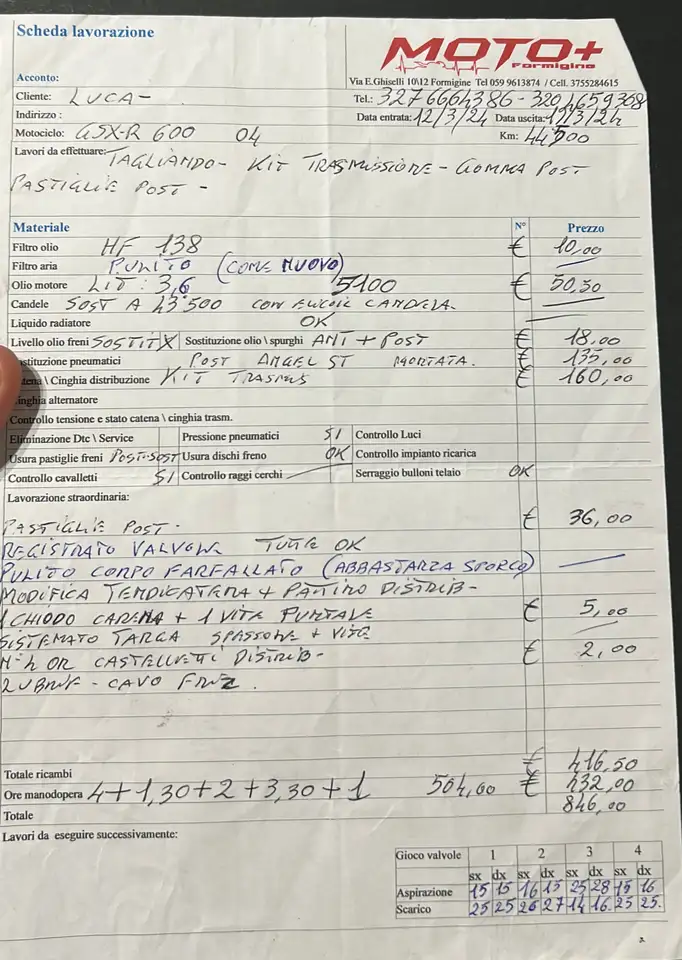 Scheda lavorazione
MOTO+
Formigine
Via E.Ghiselli 10\12 Formigine Tel 059 9613874 / Cell. 3755284615
Acconto:
Cliente: LUCA - Tel.: 3276664386 - 320 4659368
Indirizzo : Data entrata: 12/3/24 Data uscita: 19/3/24
Motociclo: GSX-R 600 04 Km: 44500
Lavori da effettuare: TAGLIANDO - KIT TRASMISSIONE - GOMMA POST
PASTIGLIE POST -
Materiale N° Prezzo
Filtro olio HF 138 € 10,00
Filtro aria PULITO (COME NUOVO)
Olio motore LIT: 3,6 5100 € 50,50
Candele SOST A 43'500 CON CANDELA
Liquido radiatore OK
Livello olio freni SOSTITX Sostituzione olio \ spurghi ANT + POST € 18,00
stituzione pneumatici POST ANGEL ST MONTATA. € 135,00
tena \ Cinghia distribuzione KIT TRASMIS € 160,00
inghia alternatore
Controllo tensione e stato catena \ cinghia trasm.
Eliminazione Dtc \ Service Pressione pneumatici SI Controllo Luci
Usura pastiglie freni POST-SOST Usura dischi freno OK Controllo impianto ricarica
Controllo cavalletti SI Controllo raggi cerchi Serraggio bulloni telaio OK
Lavorazione straordinaria:
PASTIGLIE POST. € 36,00
REGISTRATO VALVOLE TUTTE OK
PULITO CORPO FARFALLATO (ABBASTANZA SPORCO)
MODIFICA TENDICATENA + PATTINO DISTRIB -
1 CHIODO CARENA + 1 VITE PUNTALE € 5,00
SISTEMATO TARGA SPESSORE + VITE
N° 4 OR CASTELLETTI DISTRIB - € 2,00
LUBRIF - CAVO FRIZ.
Totale ricambi € 416,50
Ore manodopera 4+1,30+2+3,30+1 504,00 € 432,00
Totale 846,00
Lavori da eseguire successivamente:
Gioco valvole 1 2 3 4
sx dx sx dx sx dx sx dx
Aspirazione 15 15 16 15 25 28 15 16
Scarico 25 25 26 27 14 16 25 25